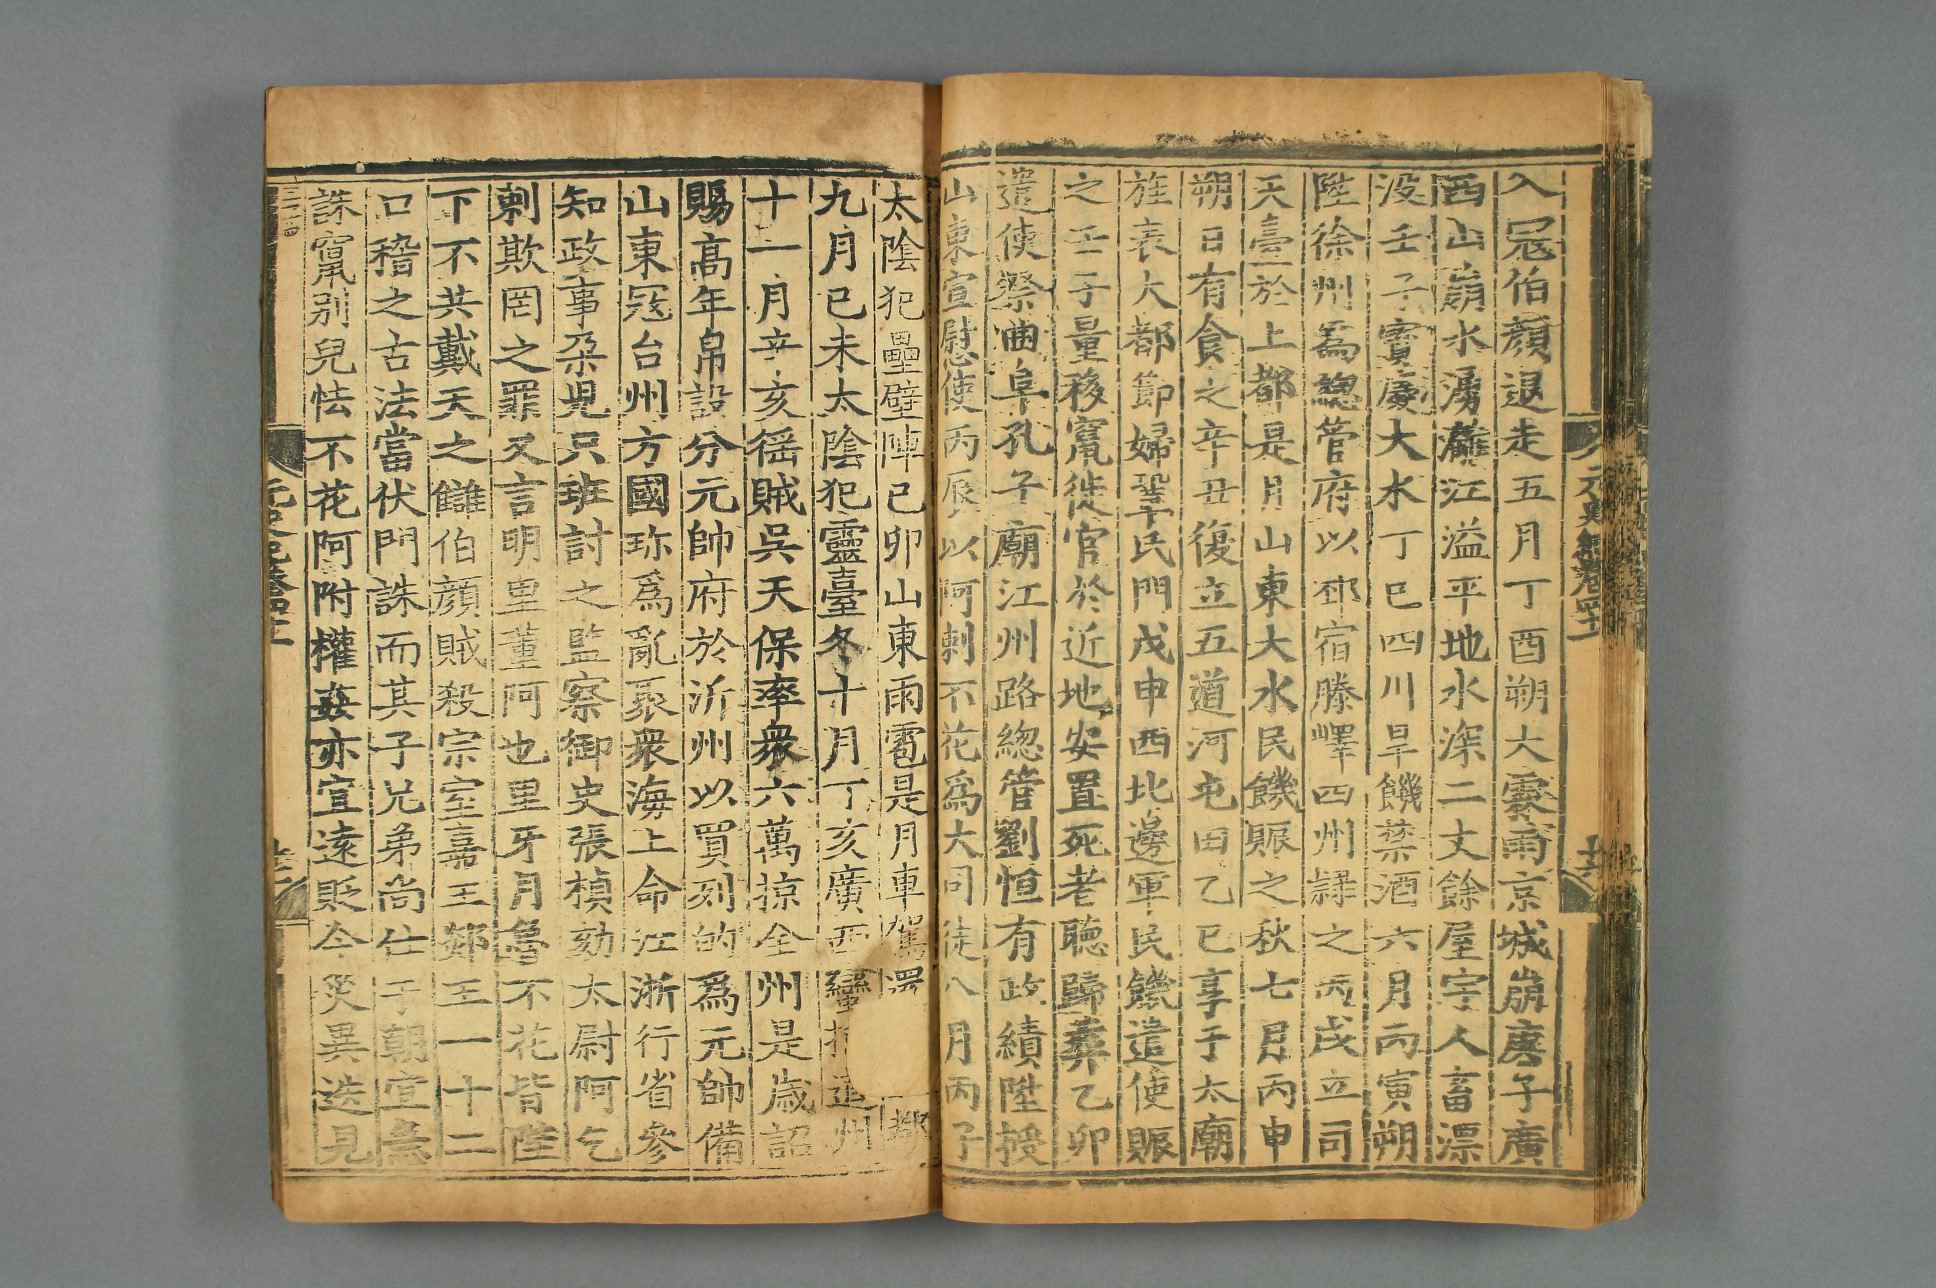 入冦伯顔退走五月丁酉朔大霖雨京城崩庚子廣
西山崩水湧灕江溢平地水深二丈餘屋宇人畜漂
没壬子寳慶大水丁巳四川旱饑禁酒六月丙寅朔
陞徐州爲總管府以邳宿滕嶧四州隷之丙戌立司
天臺於上都是月山東大水民饑賑之秋七月丙申
朔日有食之辛丑復立五道河屯田乙巳享于太廟
旌表大都節婦鞏氏門戊申西北邊軍民饑遣使賑
之壬子量移竄徙官於近地安置死老聽歸葬乙卯
遣使祭曲阜孔子廟江州路總管劉恒有政績陞授
山東宣慰使丙辰以阿剌不花爲大司徒八月丙子
太陰犯壘壁陣己卯山東雨雹是月車駕還 都
九月己未太陰犯靈臺冬十月丁亥廣西蠻掠道州
十一月辛亥徭賊吳天保率衆六萬掠全州是歲詔
賜高年帛設分元帥府於沂州以買列的爲元帥備
山東冦台州方國珎爲亂聚衆海上命江浙行省參
知政事朶兒只班討之監察御史張楨劾太尉阿乞
剌欺罔之罪又言明里董阿也里牙月魯不花皆陛
下不共戴天之讎伯顔賊殺宗室嘉王郯王一十二
口稽之古法當伏門誅而其子兄弟尚仕于朝宣急
誅竄別兒怯不花阿附權姦亦宜遠貶今災異迭見